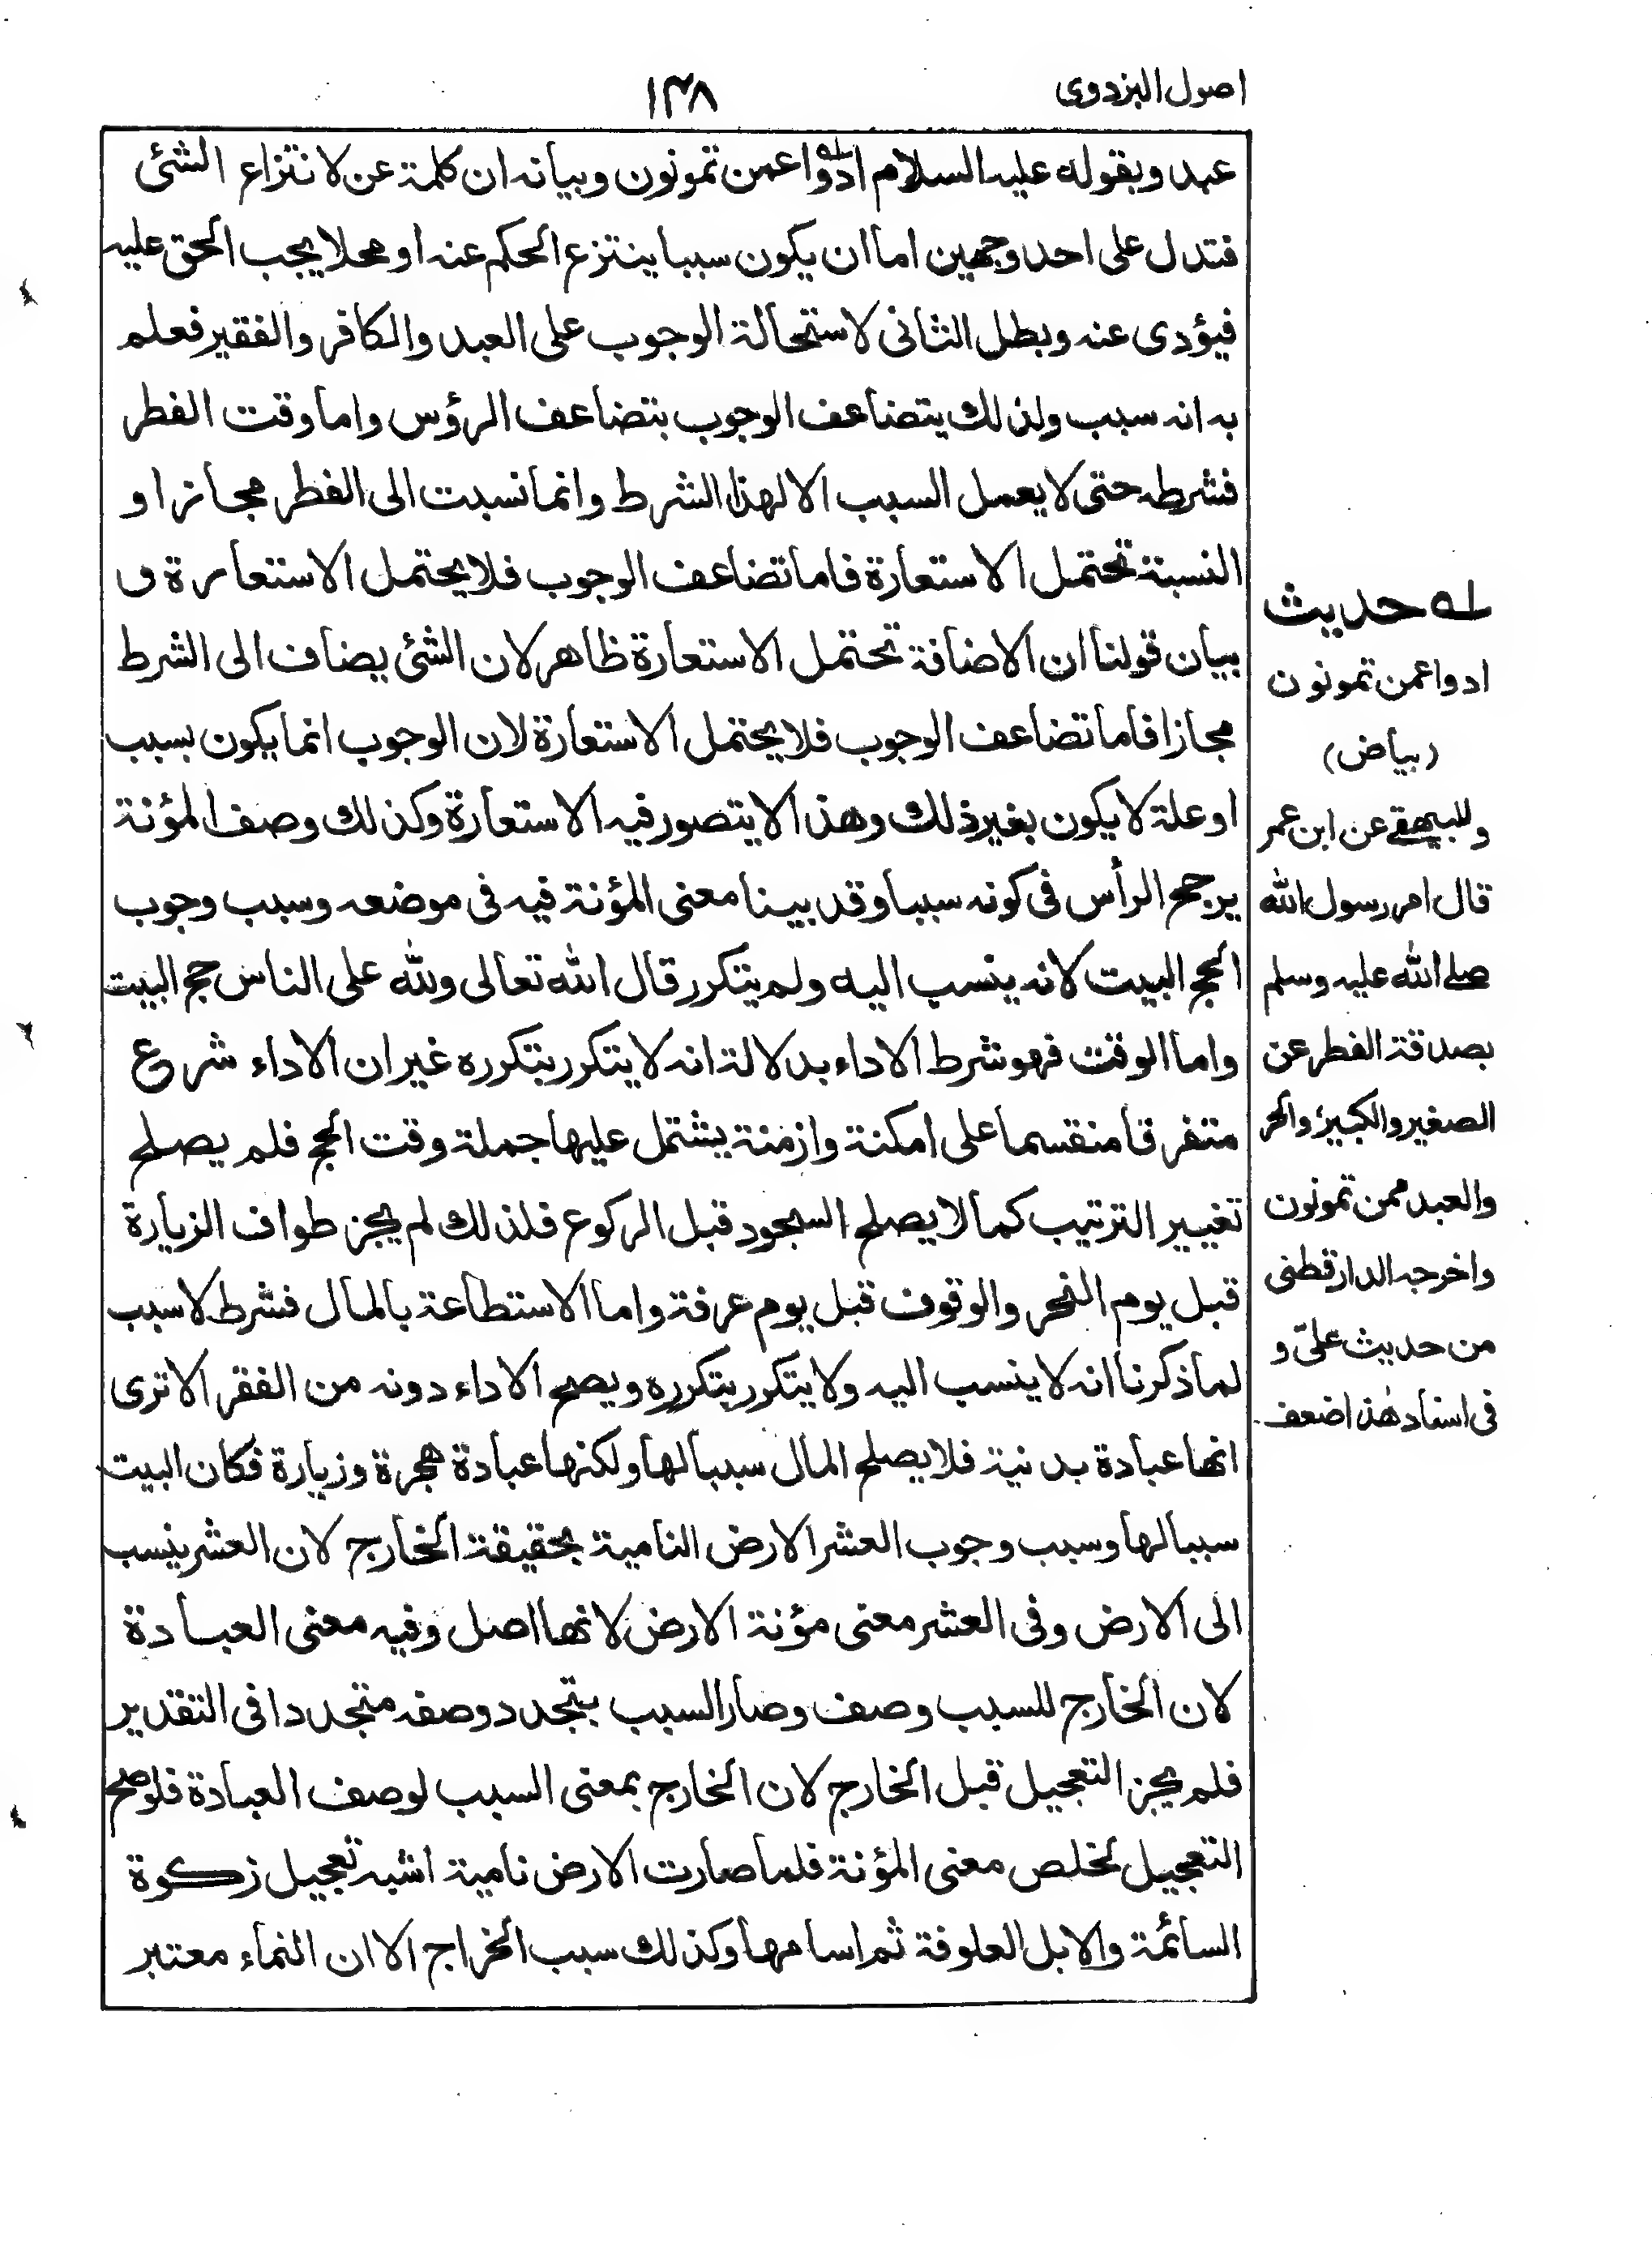 اصول البزدوی
۱۴۸
عبد وبقوله علیه السلام ادوا عمن تمونون وبیانه ان کلمة عن لانتزاع الشئ
فتدل علی احد وجهین اما ان یکون سببا ینتزع الحکم عنه او محلا یجب الحق علیه
فیؤدی عنه وبطل الثانی لاستحالة الوجوب علی العبد والکافر والفقیر فعلم
به انه سبب ولذلك یتضاعف الوجوب بتضاعف الرؤس واما وقت الفطر
فشرطه حتی لا یعمل السبب الا لهذا الشرط وانما نسبت الی الفطر مجازا و
النسبة تحتمل الاستعارة فاما تضاعف الوجوب فلا یحتمل الاستعارة و
بیان قولنا ان الاضافة تحتمل الاستعارة ظاهر لان الشئ یضاف الی الشرط
مجازا فاما تضاعف الوجوب فلا یحتمل الاستعارة لان الوجوب انما یکون بسبب
او علة لا یکون بغیر ذلك وهذا لا یتصور فیه الاستعارة وکذلك وصف المؤنة
یرجح الرأس فی کونه سببا وقد بینا معنی المؤنة فیه فی موضعه وسبب وجوب
الحج البیت لانه ینسب الیه ولم یتکرر قال الله تعالی ولله علی الناس حج البیت
واما الوقت فهو شرط الاداء بدلالة انه لا یتکرر بتکرره غیر ان الاداء شرع
متفرقا منقسما علی امکنة وازمنة یشتمل علیها جملة وقت الحج فلم یصلح
تغییر الترتیب کما لا یصلح السجود قبل الرکوع فلذلك لم یجز طواف الزیارة
قبل یوم النحر والوقوف قبل یوم عرفة واما الاستطاعة بالمال فشرط لا سبب
لما ذکرنا انه لا ینسب الیه ولا یتکرر بتکرره ویصح الاداء دونه من الفقر الا تری
انها عبادة بدنیة فلا یصلح المال سببا لها ولکنها عبادة هجرة وزیارة فکان البیت
سببا لها وسبب وجوب العشر الارض النامیة بحقیقة الخارج لان العشر ینسب
الی الارض وفی العشر معنی مؤنة الارض لانها اصل وفیه معنی العبادة
لان الخارج للسبب وصف وصار السبب بتجدد وصفه متجددا فی التقدیر
فلم یجز التعجیل قبل الخارج لان الخارج بمعنی السبب لوصف العبادة فلو صح
التعجیل لخلص معنی المؤنة فلما صارت الارض نامیة اشبه تعجیل زکوة
السائمة والابل العلوفة ثم اسامها وکذلك سبب الخراج الا ان النماء معتبر
له حدیث
ادوا عمن تمونون
(بیاض)
وللبیهقے عن ابن عمر
قال امر رسول الله
صلے الله علیه وسلم
بصدقة الفطر عن
الصغیر والکبیر والحر
والعبد ممن تمونون
واخرجه الدارقطنی
من حدیث علیّ و
فی اسناد هذا ضعف